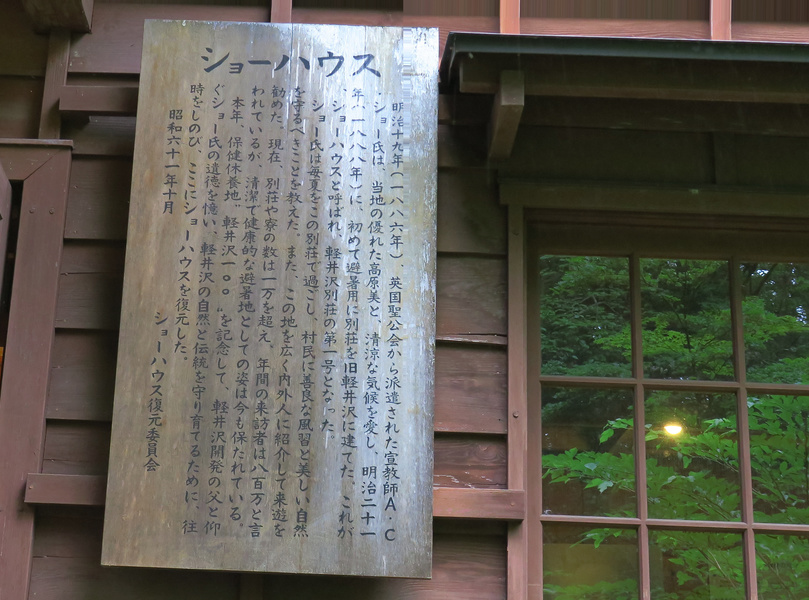 ショーハウス
明治十九年(一八八六年)、英国聖公会から派遣された宣教師A・C
・ショー氏は、当地の優れた高原美と、清涼な気候を愛し、明治二十一
年(一八八八年)に、初めて避暑用に別荘を旧軽井沢に建てた。これが
、ショーハウスと呼ばれ、軽井沢別荘の第一号となった。
ショー氏は毎夏をこの別荘で過ごし、村民に善良な風習と美しい自然
を守るべきことを教えた。また、この地を広く内外人に紹介して来遊を
勧めた。現在、別荘や寮の数は一万を超え、年間の来訪者は八百万と言
われているが、清潔で健康的な避暑地としての姿は今も保たれている。
本年、保健休養地〝軽井沢一〇〇〟を記念して、軽井沢開発の父と仰
ぐショー氏の遺徳を憶い、軽井沢の自然と伝統を守り育てるために、往
時をしのび、ここにショーハウスを復元した。
昭和六十一年十月
ショーハウス復元委員会